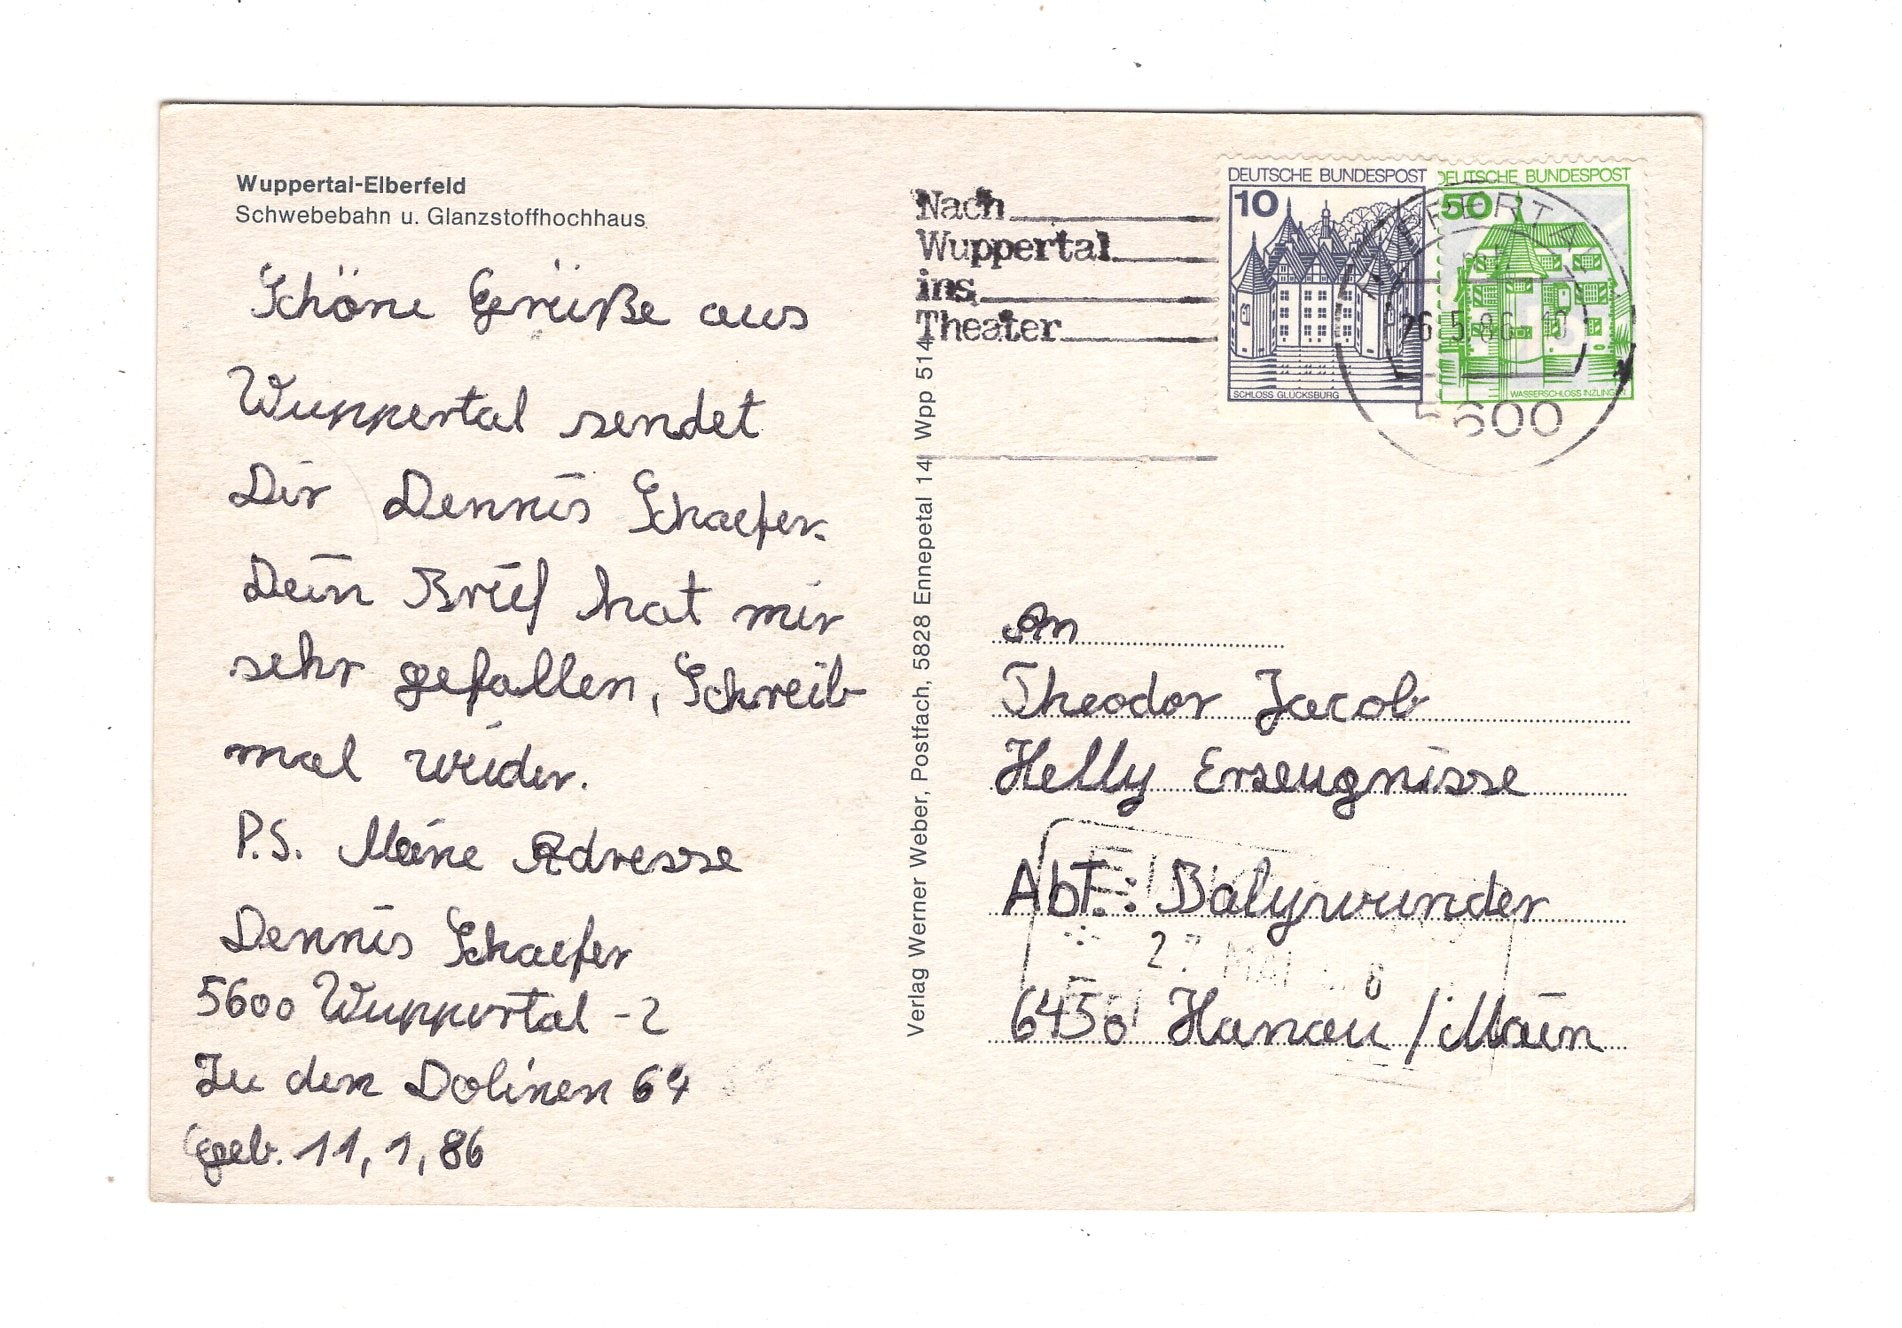 Wuppertal-Elberfeld
Schwebebahn u. Glanzstoffhochhaus
Schöne Grüße aus
Wuppertal sendet
Dir Dennis Schaefer.
Dein Brief hat mir
sehr gefallen, Schreib
mal wieder.
P.S. Meine Adresse
Dennis Schaefer
5600 Wuppertal -2
Zu den Dolinen 64
geb. 11,1,86
Verlag Werner Weber, Postfach, 5828 Ennepetal 14 Wpp 514
Nach
Wuppertal
ins
Theater
DEUTSCHE BUNDESPOST
10
SCHLOSS GLÜCKSBURG
DEUTSCHE BUNDESPOST
50
WASSERSCHLOSS INZLINGEN
26.5.86
5600
An
Theodor Jacob
Helly Erzeugnisse
Abt.: Babywunder
27 MAI
6450 Hanau / Main